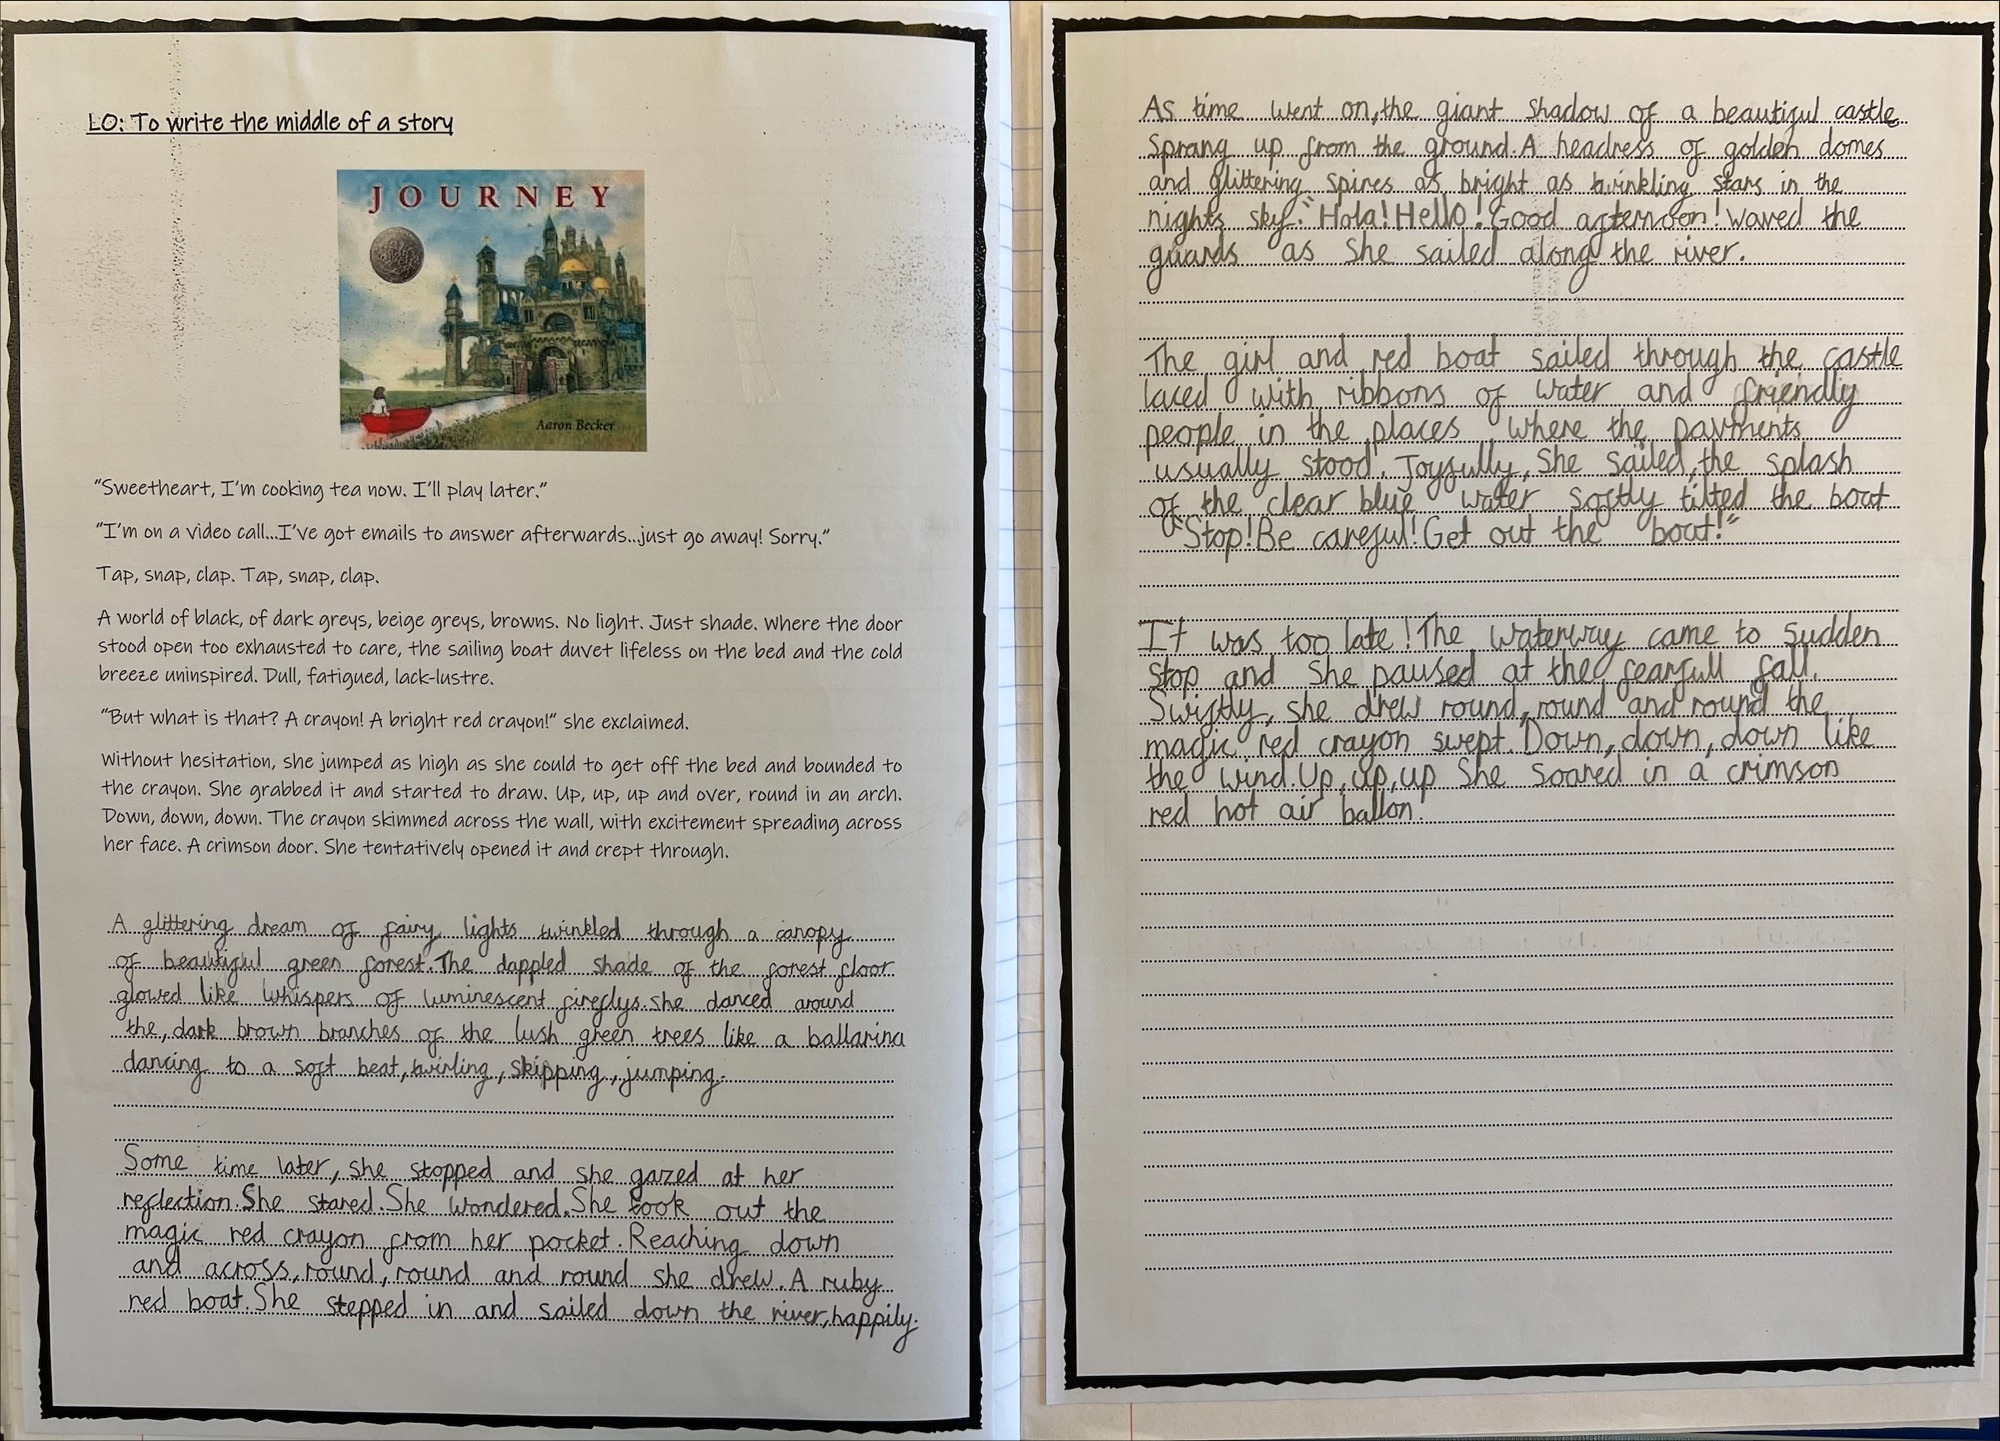 LO: To write the middle of a story
JOURNEY
Aaron Becker
“Sweetheart, I'm cooking tea now. I'll play later.”
“I'm on a video call...I've got emails to answer afterwards...just go away! Sorry.”
Tap, snap, clap. Tap, snap, clap.
A world of black, of dark greys, beige greys, browns. No light. Just shade. Where the door
stood open too exhausted to care, the sailing boat duvet lifeless on the bed and the cold
breeze uninspired. Dull, fatigued, lack-lustre.
“But what is that? A crayon! A bright red crayon!” she exclaimed.
Without hesitation, she jumped as high as she could to get off the bed and bounded to
the crayon. She grabbed it and started to draw. Up, up, up and over, round in an arch.
Down, down, down. The crayon skimmed across the wall, with excitement spreading across
her face. A crimson door. She tentatively opened it and crept through.
A glittering dream of fairy lights twinkled through a canopy
of beautiful green forest. The dappled shade of the forest floor
glowed like whispers of luminescent fireflys. She danced around
the, dark brown branches of the lush green trees like a ballarina
dancing to a soft beat, twirling, skipping, jumping.
Some time later, she stopped and she gazed at her
reflection. She stared. She wondered. She took out the
magic red crayon from her pocket. Reaching down
and across, round, round and round she drew. A ruby
red boat. She stepped in and sailed down the river, happily.
As time went on, the giant shadow of a beautiful castle
sprang up from the ground. A headress of golden domes
and glittering spires as bright as twinkling stars in the
nights sky. "Hola! Hello! Good afternoon! waved the
guards as she sailed along the river.
The girl and red boat sailed through the castle
laced with ribbons of water and friendly
people in the places where the pavments
usually stood. Joyfully, she sailed, the splash
of the clear blue water softly tilted the boat
"Stop! Be careful! Get out the boat!"
It was too late! The waterway came to sudden
stop and she paused at the fearfull fall.
Swiftly, she drew round, round and round the
magic red crayon swept. Down, down, down like
the wind. Up, up, up she soared in a crimson
red hot air ballon!